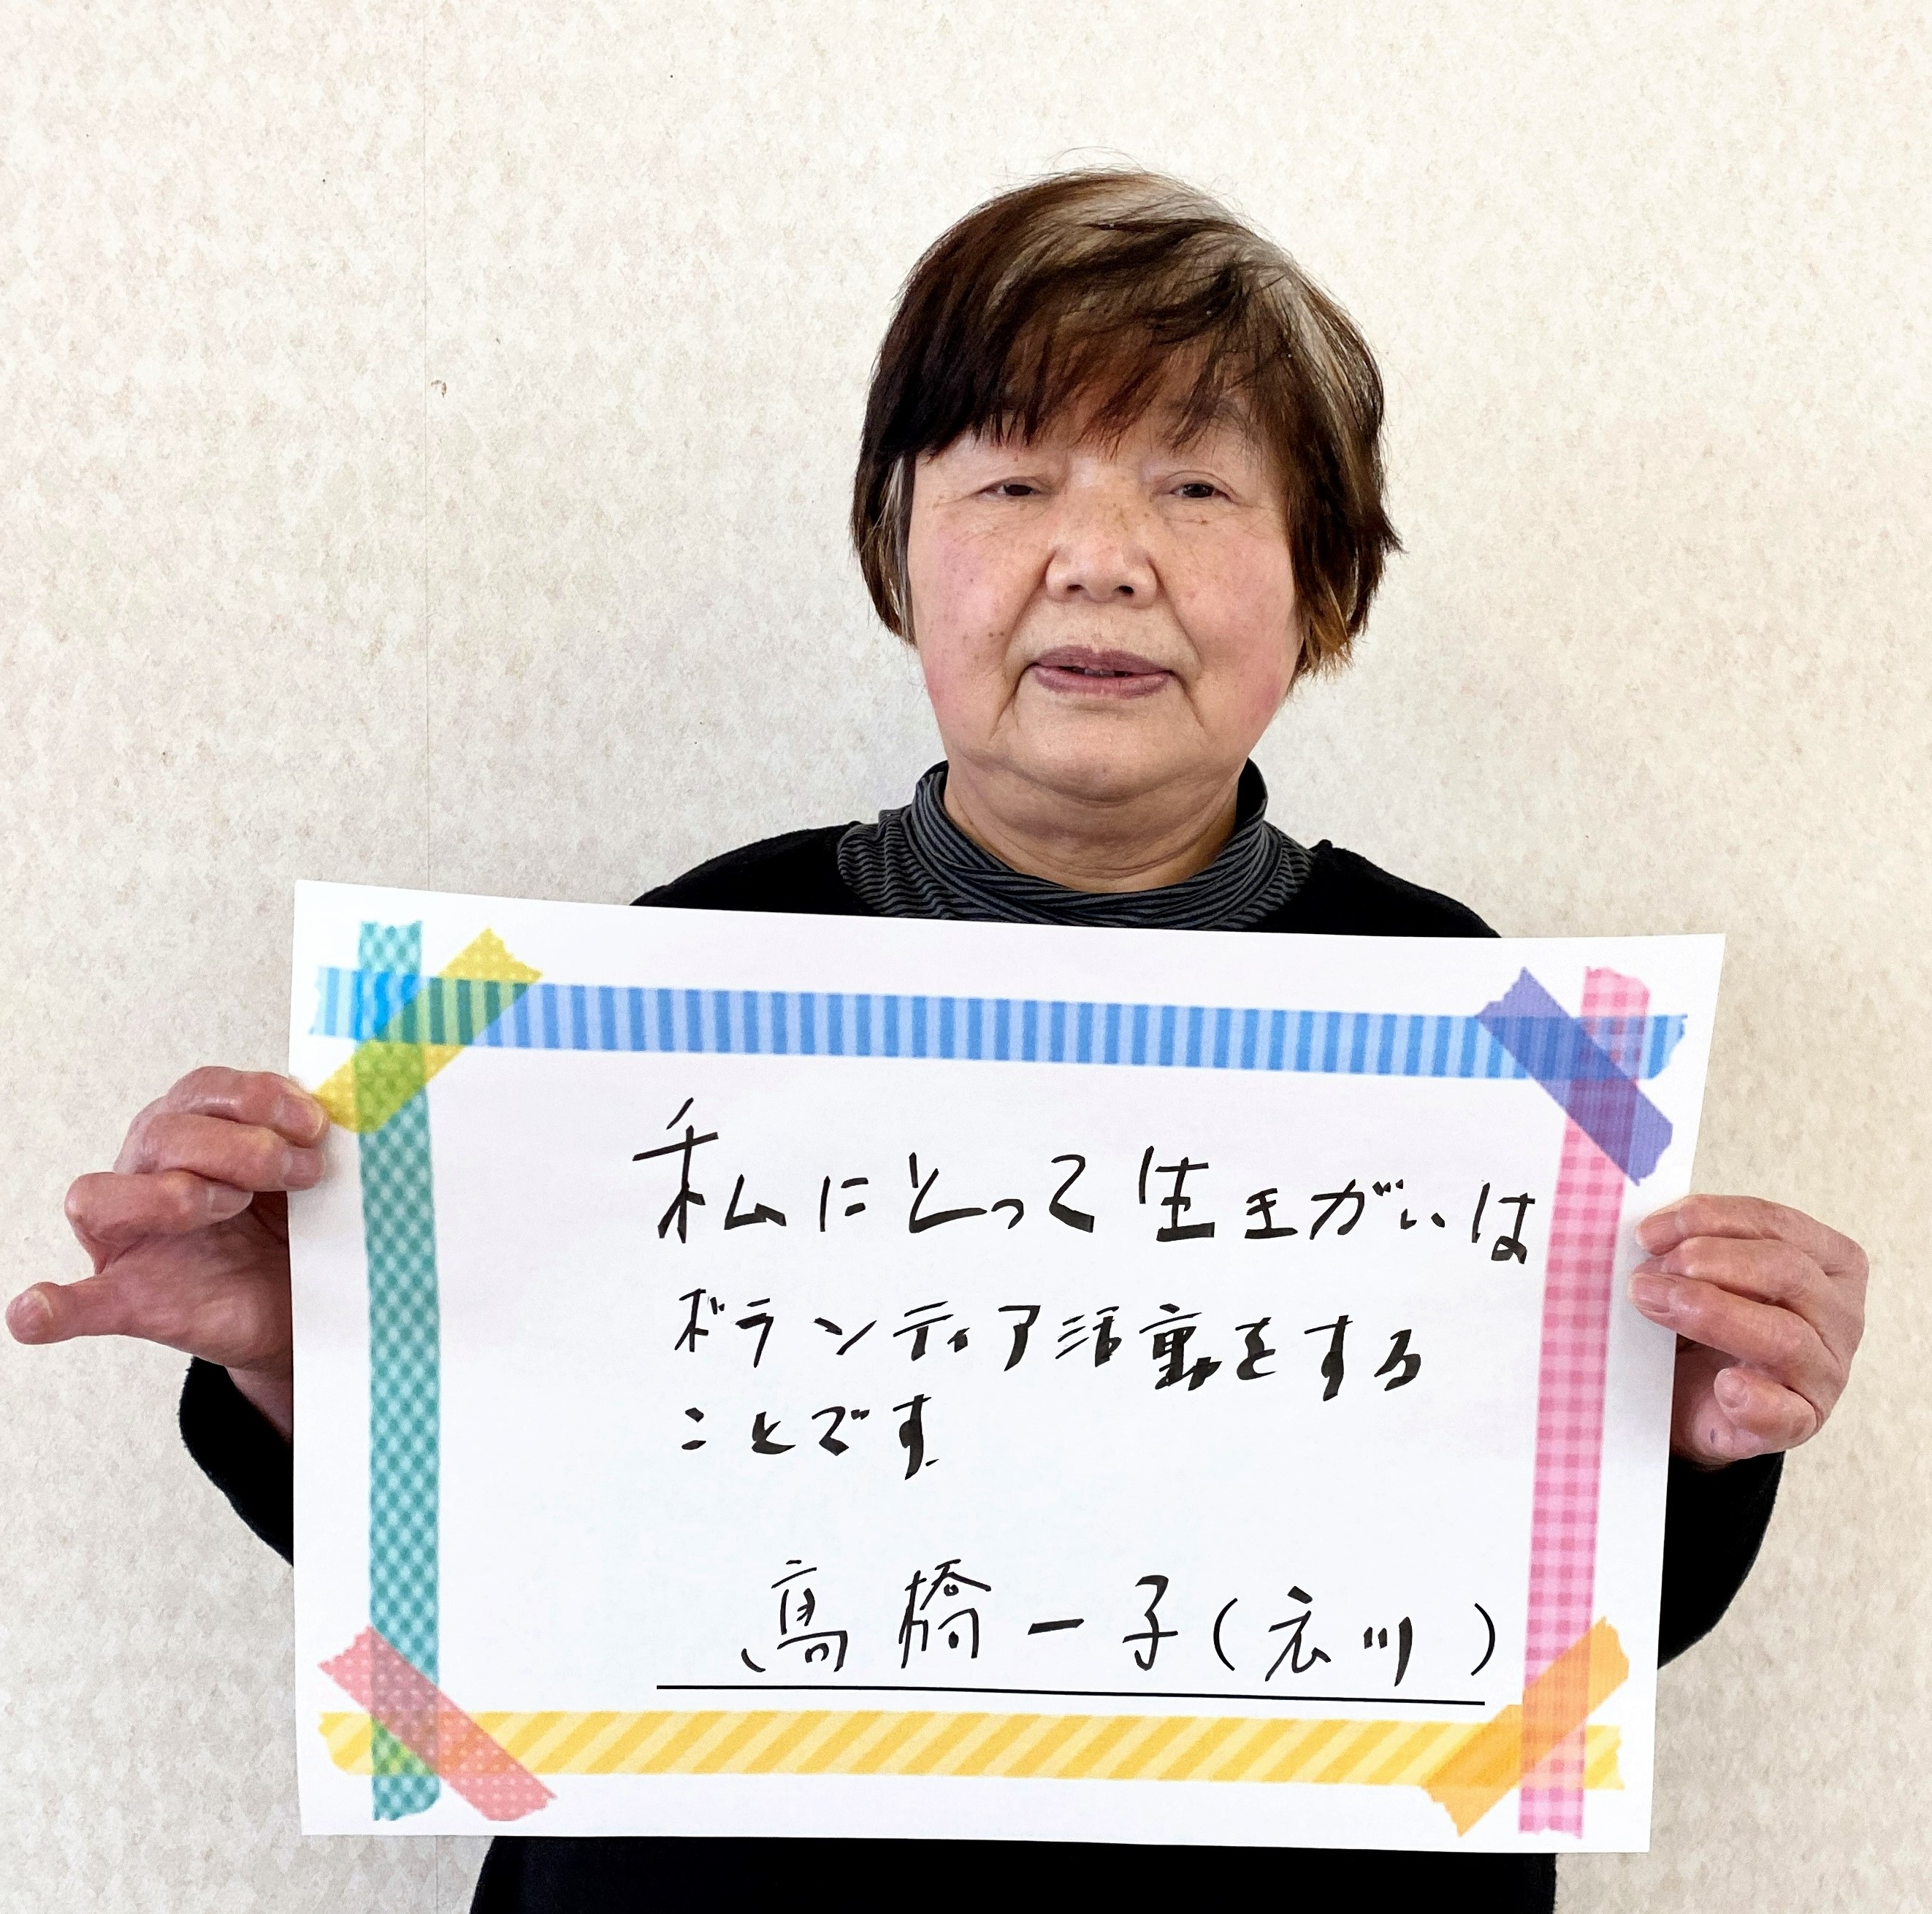 私にとって生きがいは
ボランティア活動をする
ことです
髙橋一子(衣川)